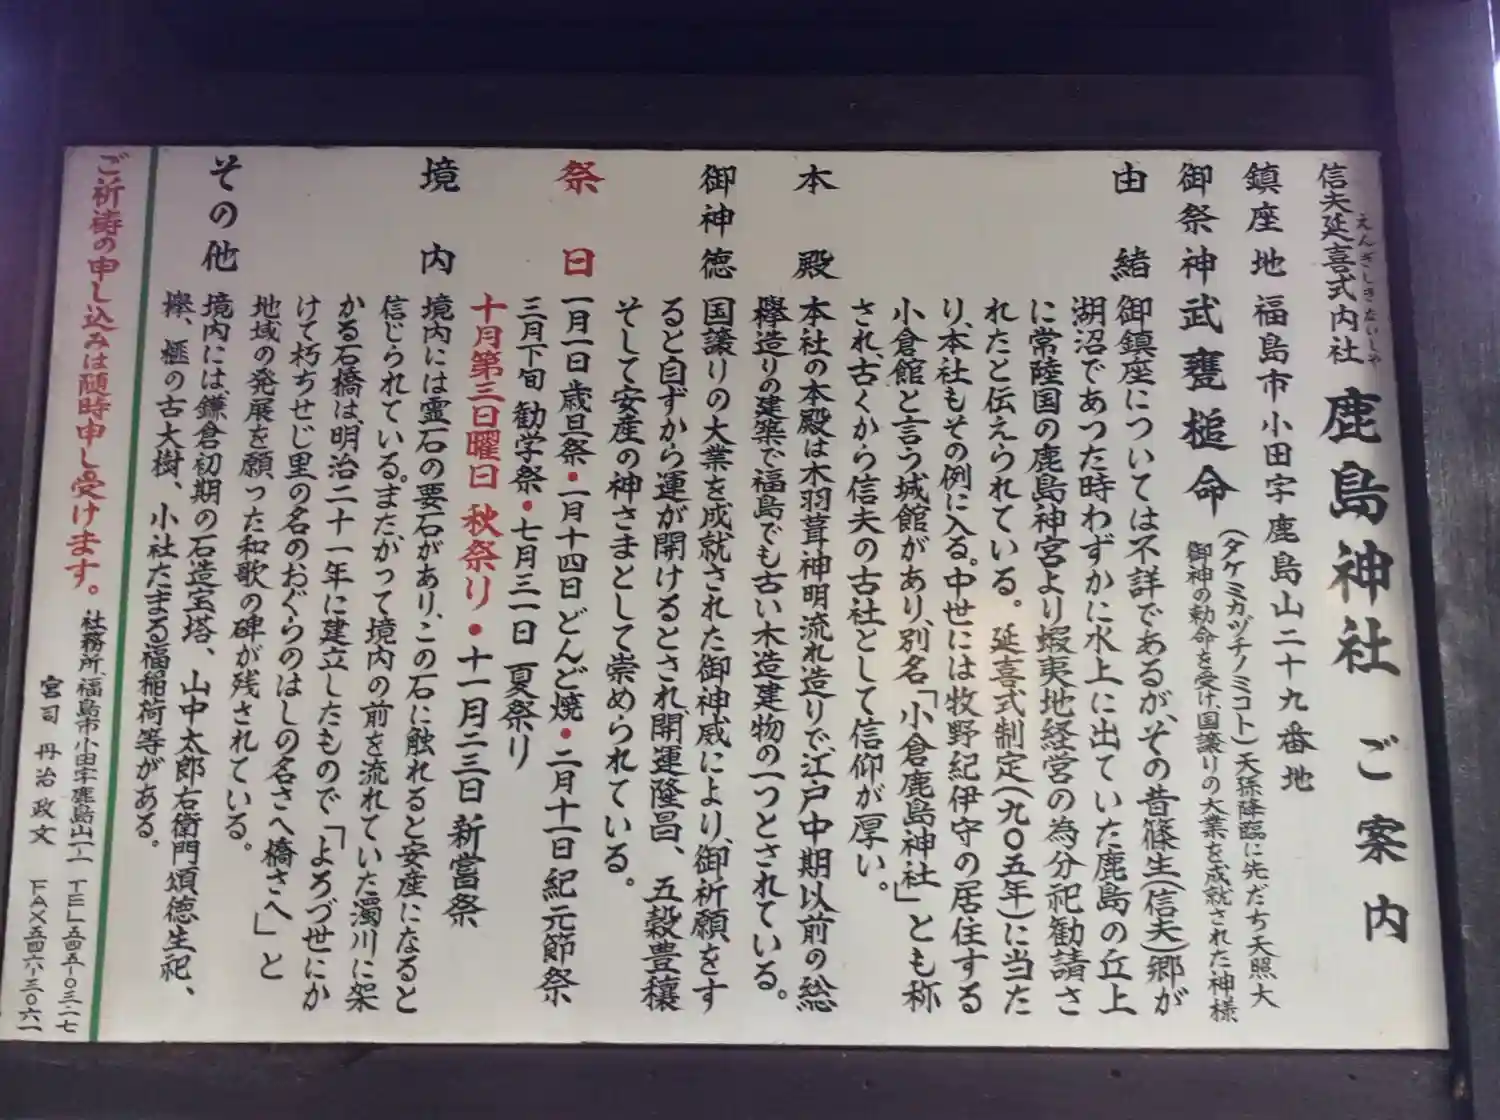 信夫延喜式内社 鹿島神社 ご案内
えんぎしきないしや
鎮座地 福島市小田字鹿島山二十九番地
御祭神 武甕槌命 (タケミカヅチノミコト)天孫降臨に先だち天照大
御神の勅命を受け、国譲りの大業を成就された神様
由緒 御鎮座については不詳であるが、その昔篠生(信夫)郷が
湖沼であつた時わずかに水上に出ていた鹿島の丘上
に常陸国の鹿島神宮より蝦夷地経営の為分祀勧請さ
れたと伝えられている。延喜式制定(九〇五年)に当た
り、本社もその例に入る。中世には牧野紀伊守の居住する
小倉館と言う城館があり、別名「小倉鹿島神社」とも称
され、古くから信夫の古社として信仰が厚い。
本殿 本社の本殿は木羽葺神明流れ造りで江戸中期以前の総
欅造りの建築で福島でも古い木造建物の一つとされている。
御神徳 国譲りの大業を成就された御神威により、御祈願をす
ると自ずから運が開けるとされ、開運隆昌、五穀豊穣
そして安産の神さまとして崇められている。
祭日 一月一日歳旦祭・一月十四日どんど焼・二月十一日紀元節祭
三月下旬勧学祭・七月三一日夏祭り
十月第三日曜日秋祭り・十一月二三日新嘗祭
境内 境内には霊石の要石があり、この石に触れると安産になると
信じられている。また、かつて境内の前を流れていた濁川に架
かる石橋は、明治二十一年に建立したもので「よろづ世にか
けて朽ちせじ里の名のおぐらのはしの名さへ橋さへ」と
地域の発展を願った和歌の碑が残されている。
その他 境内には、鎌倉初期の石造宝塔、山中太郎右衛門頌徳生祀、
欅、榧の古大樹、小社たまる福稲荷等がある。
ご祈祷の申し込みは随時申し受けます。 社務所、福島市小田字鹿島山一ー一 TEL五四五ー〇三一七
宮司 丹治政文 FAX五四六ー三〇六一